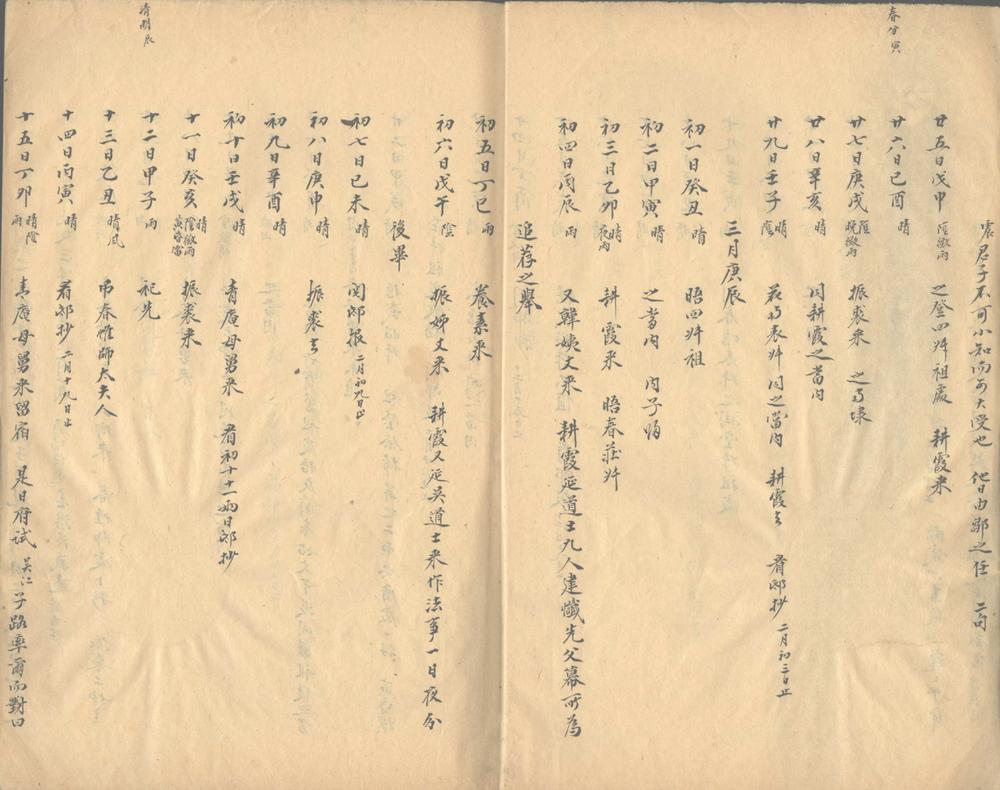 春分寅
震君子不可小知而可大受也 他日由鄒之任 二句
廿五日戊申 陰微雨 之登四叔祖處 耕霞來
廿六日己酉 晴
廿七日庚戌 陰晚微雨 振裘來 之
廿八日辛亥 晴 同耕霞之當内
廿九日壬子 晴陰 叔同之當内 耕霞去 看邸抄 二月初三日止
三月庚辰
初一日癸丑 晴 晤四叔祖
初二日甲寅 晴 之當内 内子
初三日乙卯 晴夜雨 耕霞來 晤春莊叔
初四日丙辰 雨 又韓姨丈來 耕霞延道士九人建懺先父幕所為
追荐之舉
初五日丁巳 雨 養素來
初六日戊午 陰 振姊丈來 耕霞又延吳道士來作法事一日夜分
後畢
初七日己未 晴 閱邸報 二月初九日止
初八日庚申 晴 振裘去
初九日辛酉 晴
初十日壬戌 晴 青庵母舅來 看初十十一兩日邸抄
十一日癸亥 晴陰微雨黃昏雷 振裘來
十二日甲子 雨 祀先
十三日乙丑 晴風 弔春惟師太夫人
十四日丙寅 晴 看邸抄 二月十九日止
十五日丁卯 晴陰雨 青庵母舅來留宿 是日府試 吳江 子路率爾而對曰
清明辰